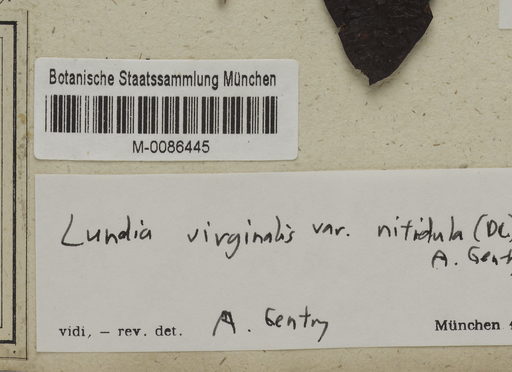 Botanische Staatssammlung München
M-0086445
Lundia virginalis var. nitidula (DC)
A. Gentry
vidi, — rev. det. A. Gentry
München